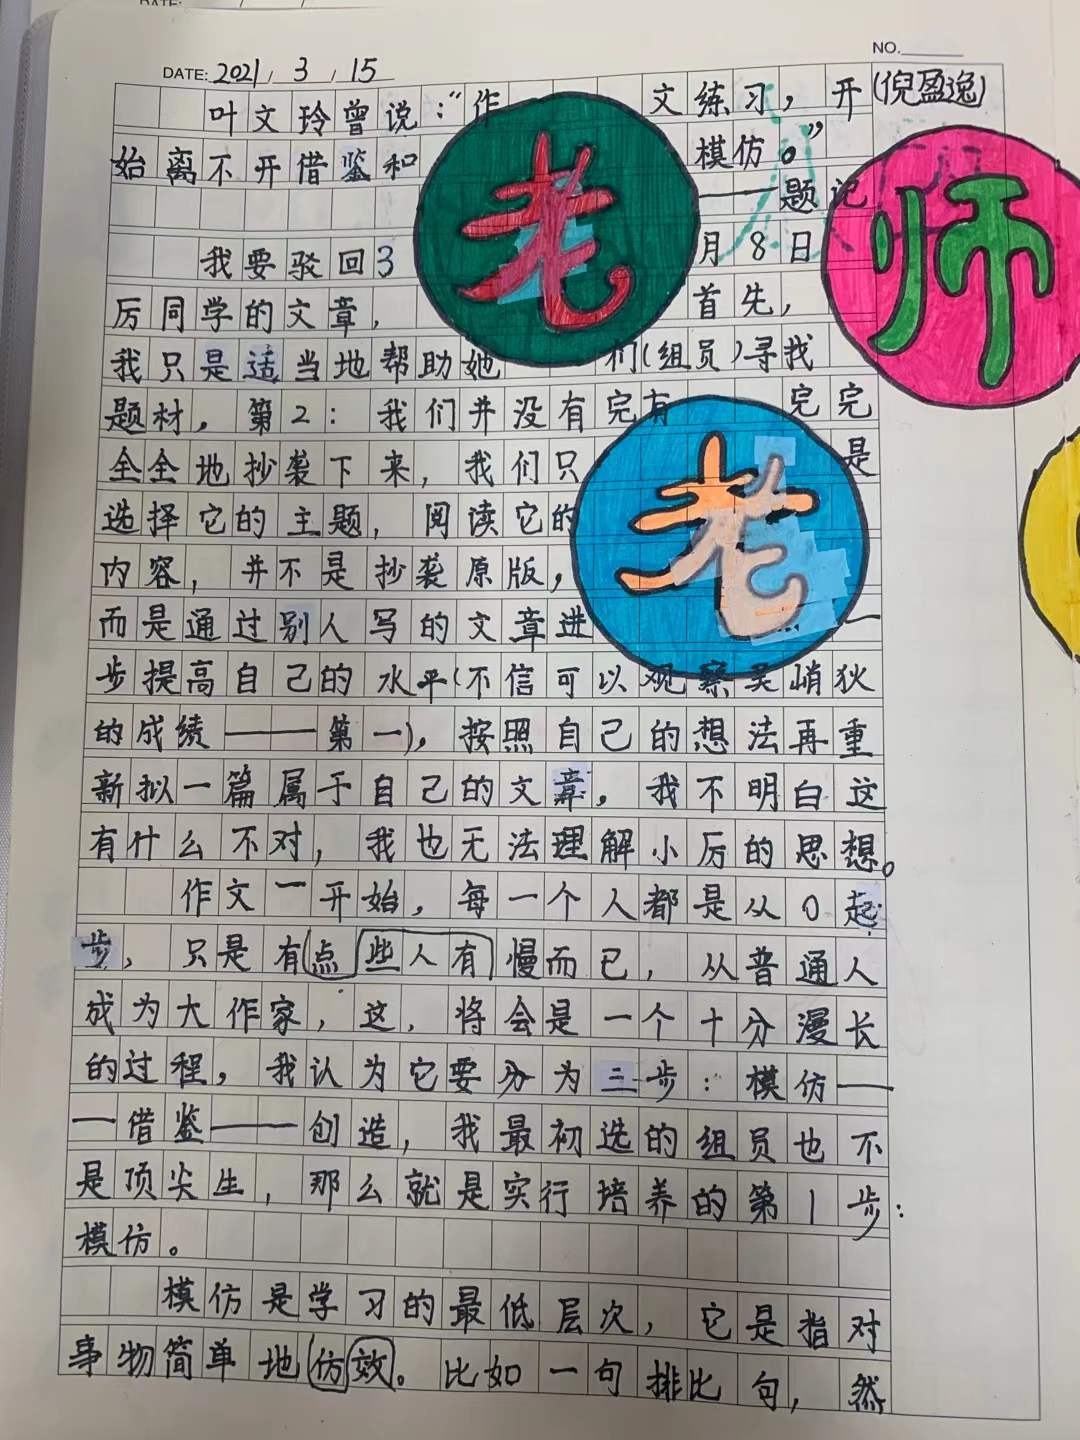 DATE: 2021 / 3 / 15
NO.
(倪盈逸)
叶文玲曾说：“作文练习，开
始离不开借鉴和模仿。”
——题记
我要驳回3月8日
厉同学的文章，首先，
我只是适当地帮助她们(组员)寻找
题材，第2：我们并没有完有完完
全全地抄袭下来，我们只是
选择它的主题，阅读它的
内容，并不是抄袭原版，
而是通过别人写的文章进一
步提高自己的水平(不信可以观察吴峭狄
的成绩——第一)，按照自己的想法再重
新拟一篇属于自己的文章，我不明白这
有什么不对，我也无法理解小厉的思想。
作文一开始，每一个人都是从0起
步，只是有点些人有慢而已，从普通人
成为大作家，这，将会是一个十分漫长
的过程，我认为它要分为三步：模仿—
—借鉴——创造，我最初选的组员也不
是顶尖生，那么就是实行培养的第1步：
模仿。
模仿是学习的最低层次，它是指对
事物简单地仿效。比如一句排比句，然
老
师
老